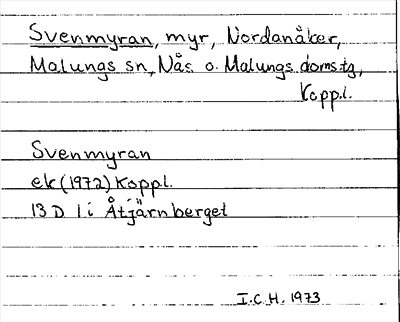 Svenmyran, myr, Nordanåker,
Malungs sn, Nås o. Malungs doms.tg,
Kopp.l.
Svenmyran
ek (1972) Koppl.
13 D 1 i Åtjärnberget
I.C.H. 1973